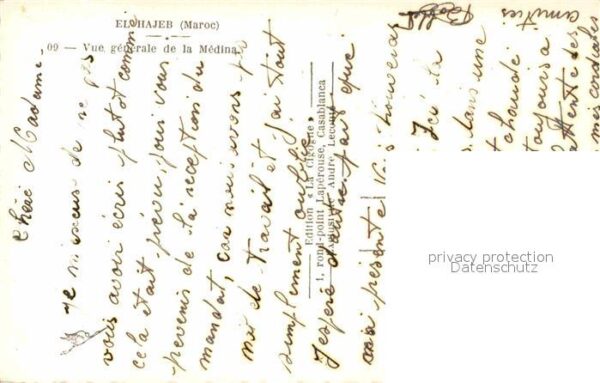 EL-HAJEB (Maroc)
09 — Vue générale de la Médina
Edition « La Cigogne »
1, rond-point Lapérouse, Casablanca
André Lecomte
Chère Madame.
Je m'excuse de ne pas
vous avoir écris plutot comme
cela était prévu, pour vous
prevenis de la réception du
mandat, car nous avons
de travail et j'ai tout
simplement oublié.
J'espère faut que
présente
nouveau
Ici la
dans une
chaude
toujours a
attente des
mes cordiales
amitiés
privacy protection
Datenschutz